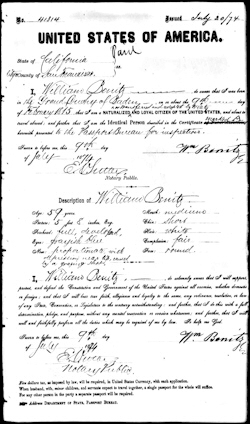 No. 41314 Issued July 20/74
UNITED STATES OF AMERICA.
State of California
County of San Francisco
I, William Benitz, do
swear that I was born in
the Grand Duchy of Baden on or about the 9th
February 1815
that I am a NATURALIZED AND LOYAL CITIZEN OF THE UNITED STATES, and about to
travel abroad; and further that I am the Identical Person described in the Certificate
herewith presented to the Passport Bureau for inspection.
Sworn to before me, this 9th Wm Benitz
day of July 1874
Notary Public.
Description of William Benitz
Age: 59 years Mouth: medium
Stature: 5 feet Chin: short
Eyes: Hair: white
Nose: Complexion: fair
Face: round
I, William Benitz, do solemnly swear that I will support,
protect, and defend the Constitution and Government of the United States against all enemies, whether domestic
or foreign; and that I will bear true faith, allegiance, and loyalty to the same, any ordinance, resolution, or law
of any State, Convention, or Legislature to the contrary notwithstanding; and further, that I do this with a full
determination, pledge, and purpose, without any mental reservation or evasion whatsoever; and further, that I will
well and faithfully perform all the duties which may be required of me by law. So help me God.
Sworn to before me, this 9th Wm Benitz
day of July 1874
Notary Public
Five dollars tax, as imposed by law, will be required, in United States Currency, with each application.
When husband, wife, minor children, and servants expect to travel together, a single passport for the whole will suffice.
For any other person in the party a separate passport will be required.
Address DEPARTMENT OF STATE, PASSPORT BUREAU.